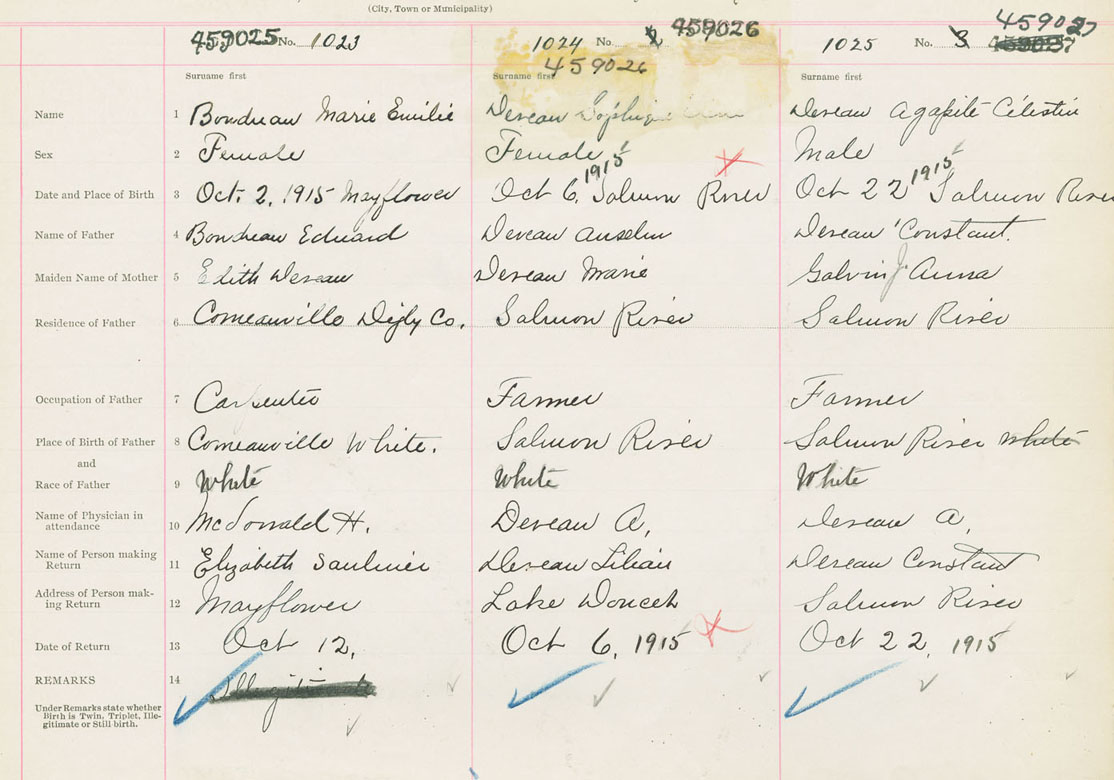 (City, Town or Municipality)
459025 No. 1023
1024 No. 2 459026
459026
1025 No. 3 459027
Surname first Surname first Surname first
Name 1 Boudreau Marie Emilie Deveau Deveau Agapite Célestin
Sex 2 Female Female Male
Date and Place of Birth 3 Oct. 2, 1915 Mayflower Oct 6, 1915 Salmon River Oct 22 1915 Salmon River
Name of Father 4 Boudreau Edward Deveau Anselm Deveau Constant.
Maiden Name of Mother 5 Edith Deveau Deveau Marie Galvin J. Anna
Residence of Father 6 Comeauville Digby Co. Salmon River Salmon River
Occupation of Father 7 Carpenter Farmer Farmer
Place of Birth of Father 8 Comeauville White. Salmon River Salmon River White
and
Race of Father 9 White White White
Name of Physician in
attendance 10 McDonald H. Deveau A, Deveau A,
Name of Person making
Return 11 Elizabeth Saulnier Deveau Lilian Deveau Constant
Address of Person mak-
ing Return 12 Mayflower Lake Doucet Salmon River
Date of Return 13 Oct 12, Oct 6, 1915 Oct 22, 1915
REMARKS 14
Under Remarks state whether
Birth is Twin, Triplet, Ille-
gitimate or Still birth.